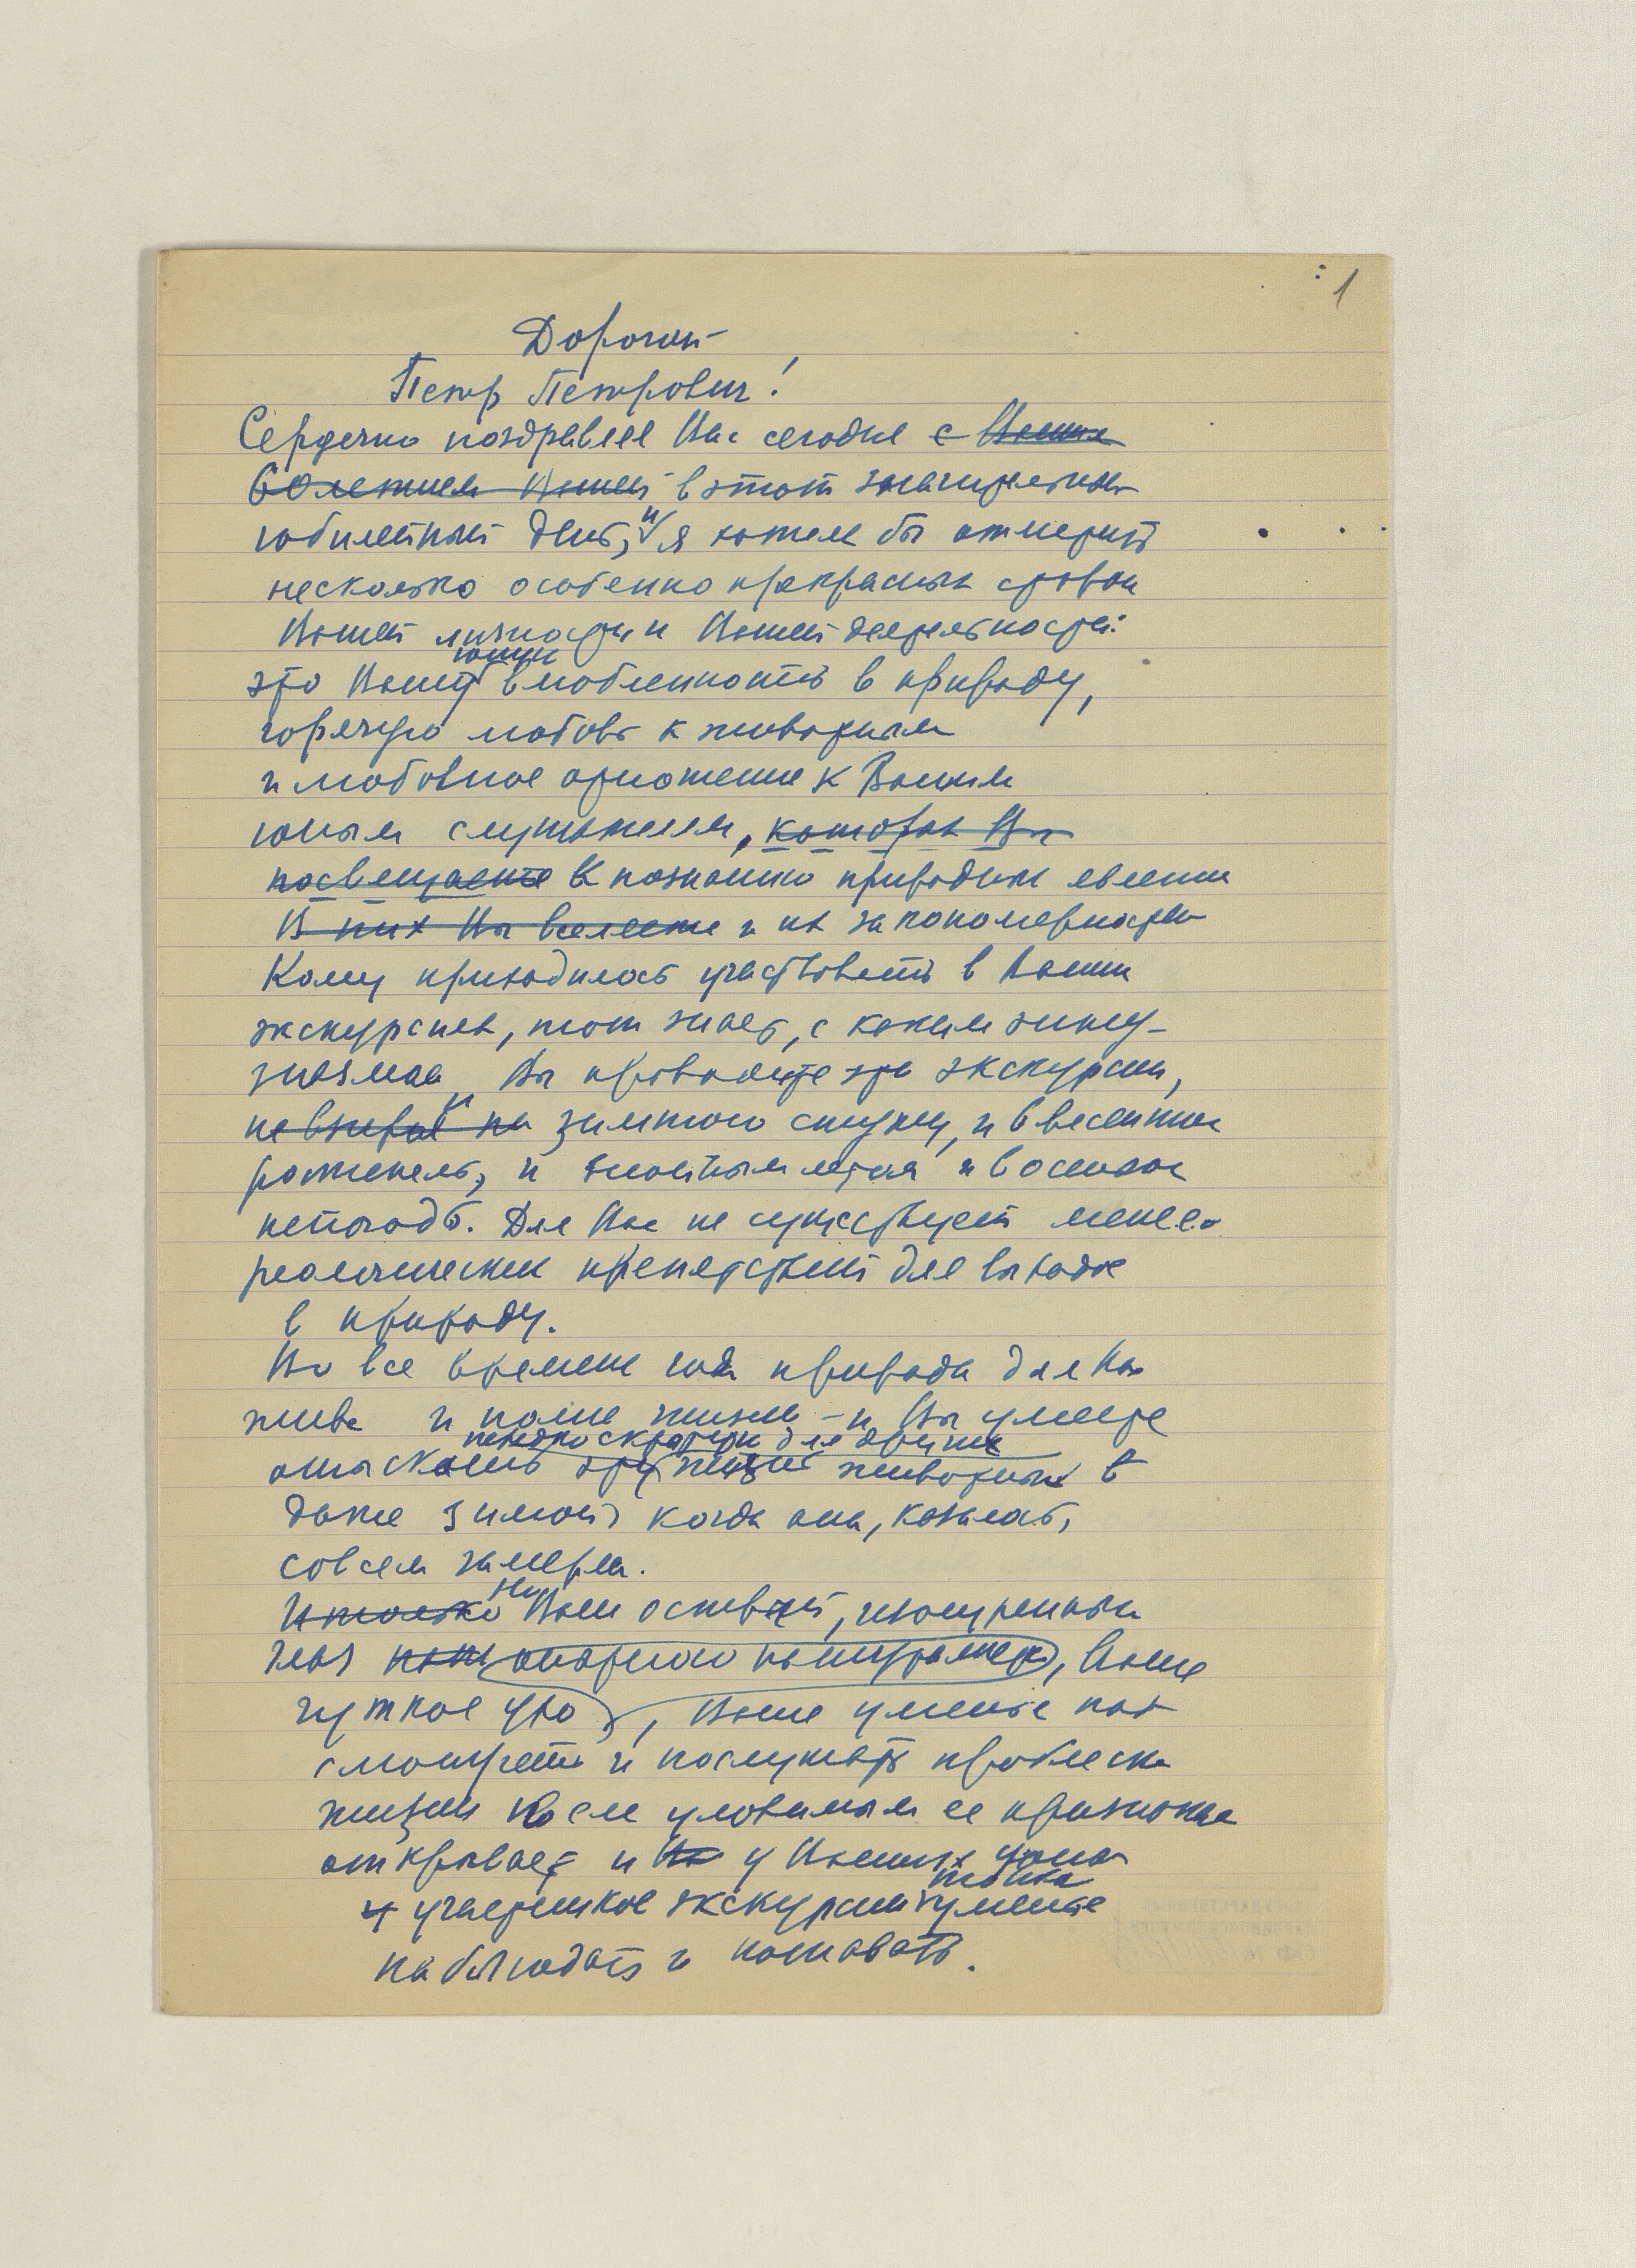 1
Дорогой
Петр Петрович!
Сердечно поздравляя Вас сегодня с Вашим
60 летием Вашей в этот знаменательный
юбилейный день, и я хотел бы отметить
несколько особенно прекрасных сторон
Вашей личности и Вашей деятельности:
это Вашу юную влюбленность в природу,
горячую любовь к животным
и любовное отношение к Вашим
юным слушателям, которых Вы
посвящаете в познанию природных явлений
В них Вы вселяете и их закономерностей
Кому приходилось участвовать в Ваших
экскурсиях, тот знает, с каким энту-
зиазмом Вы проводите эти экскурсии,
невзирая на и зимнюю стужу, и в весеннюю
ростепель, и знойным летом и в осеннюю
непогодь. Для Вас не существует метео
рологических препятствий для выхода
в природу.
Во все времена года природа для Вас
жива и полна жизни – и Вы умеете
отыскать эту жизнь животных в
даже зимой, когда она, казалось,
совсем замерла.
И только Ваш острый, изощренный
глаз опытного натуралиста, Ваше
чуткое ухо, Ваше уменье
смотреть и послушать проблески
жизни по еле уловимым ее признакам
открывает и у Ваших юных
участников экскурсий уменье
наблюдать и познавать.